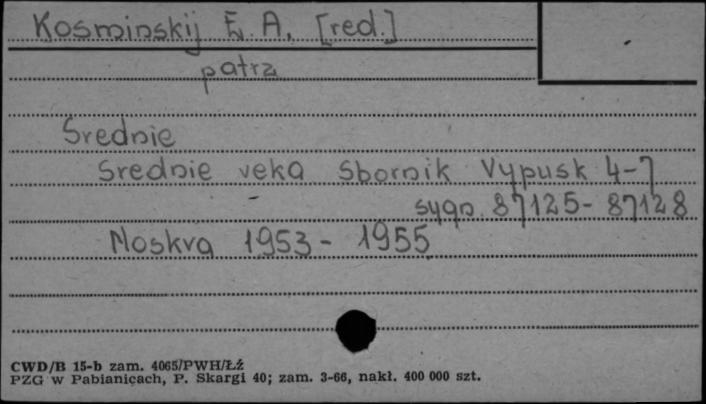 Kosminskij E. A. [red.]
patrz
Srednie
Srednie veka Sbornik Vypusk 4-7
sygn. 87125-87128
Moskva 1953-1955
CWD/B 15-b zam. 4065/PWH/Łź
PZG w Pabianicach, P. Skargi 40; zam. 3-66, nakł. 400 000 szt.